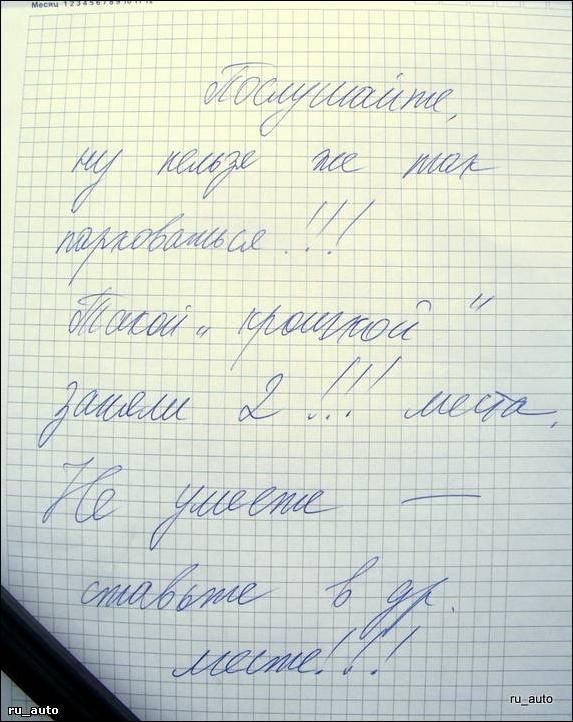 Месяц 1 2 3 4 5 6 7 8 9 10 11 12
Послушайте,
ну нельзя же так
парковаться!!!
Такой „крошкой"
заняли 2!!! места.
Не умеете —
ставьте в др.
месте!!!
ru_auto
ru_auto